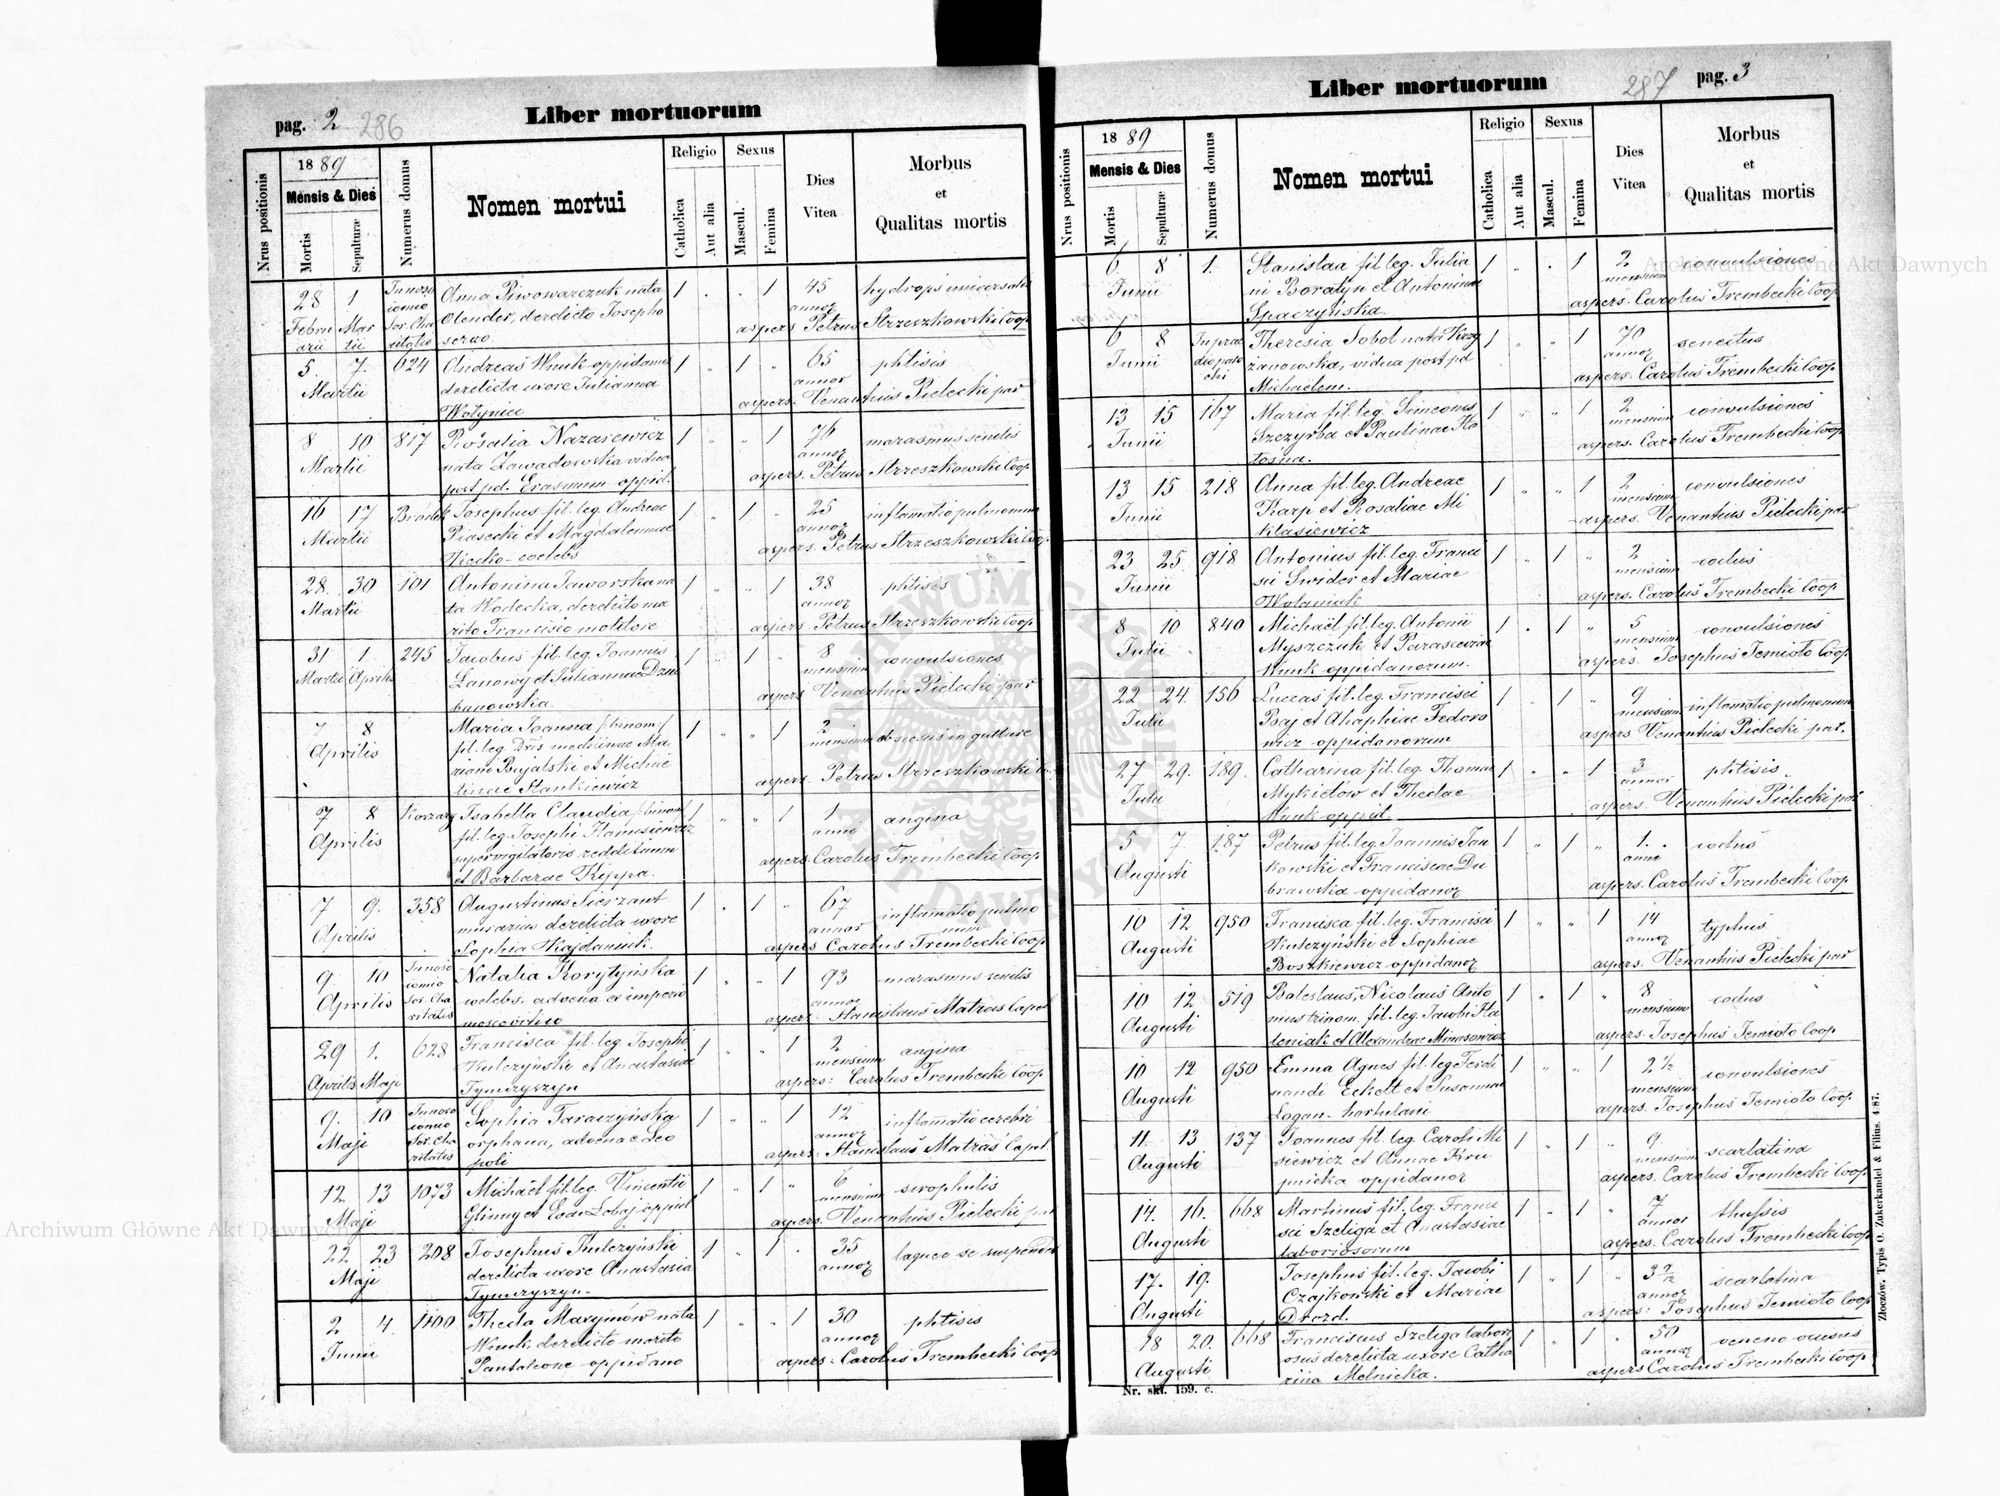 pag. 2 286
Liber mortuorum
Nrus positionis
1889
Mensis & Dies
Mortis
Sepulturæ
Numerus domus
Nomen mortui
Religio
Catholica
Aut alia
Sexus
Mascul.
Femina
Dies
Vitea
Morbus
et
Qualitas mortis
28 1 Anna Piwowarczuk nata 1 1 45 hydrops universalis
Febru Mar Olender, derelicto Josepho annor
arii tii servo aspers Petrus Strzeszkowski Coop
5. 7. 624 Andreas Wnuk oppidanus 1 1 65 phtisis
Martii derelicta uxore Julianna annor
Wołyniec aspers. Venantius Pielecki par
8 10 817 Rosalia Nazarewicz 1 1 76 marasmus senilis
Martii nata Zawadowska vidua annor
post pd. Erasmum oppid. aspers. Petrus Strzeszkowski Coop
16 17 Josephus fil. leg. Andreae 1 1 25 inflamatio pulmonum
Martii Piasecki et Magdalennae annor
coelebs aspers. Petrus Strzeszkowski Coop.
28. 30 101 Antonina Jaworska na 1 1 38 phtisis
Martii ta Kodecka, derelicto ma annor
rito Francisco molitore aspers. Petrus Strzeszkowski Coop
31 1 245 Jacobus fil. leg. Joannis 1 1 8 convulsiones
Martii Aprilis Lanowy et Juliannae Dziu mensium
banowska aspers Venantius Pielecki par
7 8 Maria Joanna /:binom:/ 1 1 2
Aprilis fil. leg. Dris medicinae Ma mensium in gutture
riani Bujalski et Michae
linae Stankiewicz aspers. Petrus Strzeszkowski
7 8 Korzary Isabella Claudia /:binom:/ 1 1 1 angina
Aprilis fil. leg. Josephi anni
supervigilatoris reddituum
et Barbarae Kippa. aspers. Carolus Trembecki Coop
7 9. 358 Augustinus Sierzant 1 1 67 inflamatio pulmo
Aprilis murarius derelicta uxore annor num
Sophia Kajdaniuk. aspers Carolus Trembecki Coop
9. 10 Natalia Korytyńska 1 1 93 marasmus senilis
Aprilis coelebs. advena ex imperio annor
moscovitico aspers. Stanislaus Matras Capel
29 1. 628 Francisca fil. leg. Josephi 1 1 2 angina
Aprilis Maji Kulczyński et Anastasiae mensium
Tymczyszyn aspers: Carolus Trembecki Coop
9. 10 Sophia Taraczyńska 1 1 12 inflamatio cerebri
Maji orphana, advena e Leo annor
poli aspers: Stanislaus Matras Capel.
12 13 1073 Michaël fil. leg. Vincentii 1 1 6 scrophulis
Maji Glinny et Łobaj oppid mensium
aspers. Venantius Pielecki par
22 23 208 Josephus Kulczyński 1 1 35 laqueo se suspendit
Maji derelicta uxore Anastasia annor
Tymczyszyn.
2 4. 1100 Thecla Maxymów nata 1 1 30 phtisis
Junii Wnuk, derelicto marito annor
Pantaleone oppidano aspers: Carolus Trembecki Coop
Liber mortuorum
287 pag. 3
Nrus positionis
1889
Mensis & Dies
Mortis
Sepulturæ
Numerus domus
Nomen mortui
Religio
Catholica
Aut alia
Sexus
Mascul.
Femina
Dies
Vitea
Morbus
et
Qualitas mortis
6. 8 1. Stanislaa fil. leg. Julia 1 1 2 convulsiones
Junii ni Boratyn et Antoninae mensium
Spaczyńska aspers. Carolus Trembecki Coop
6 8 Theresia Sobol nata Krzy 1 1 70 senectus
Junii żanowska, vidua post pd annor
Michaëlem. aspers. Carolus Trembecki Coop.
13 15 167 Maria fil. leg. Simeonis 1 1 2 convulsiones
Junii Szczyrba et Paulinae Ko mensium
tosna. aspers. Carolus Trembecki Coop
13 15 218 Anna fil. leg. Andreae 1 1 2 convulsiones
Junii Karp et Rosaliae Mi mensium
klasiewicz aspers. Venantius Pielecki par
23 25 918 Antonius fil. leg. Franci 1 1 2 coctus
Junii sci Swider et Mariae mensium
Wolaniuk aspers. Carolus Trembecki Coop
8 10 840 Michaël fil. leg. Antonii 1 1 5 convulsiones
Julii Myszczuk et Parasceviae mensium
Wnuk oppidanorum. aspers. Josephus Temioto Coop
22 24. 156 Luccas fil. leg. Francisci 1 1 9 inflamatio pulmonum
Julii Baj et Ahaphiae Fedoro mensium
wicz oppidanorum aspers Venantius Pielecki par.
27 29. 189. Catharina fil. leg. Thomae 1 1 3 phtisis
Julii Mykietow et Theclae annor
Wnuk oppid. aspers. Venantius Pielecki par
5 7. 187 Petrus fil. leg. Joannis Jan 1 1 1. coctus
Augusti kowski et Franciscae Du anni
brawska oppidanor aspers. Carolus Trembecki Coop
10 12 950 Francisca fil. leg. Francisci 1 1 14 typhus
Augusti Kulczyński et Sophiae annor
Boszkiewicz oppidanor aspers. Venantius Pielecki par
10 12 519 Boleslaus, Nicolaus Anto 1 1 8 coctus
Augusti nius trinom. fil. leg. Jacobi Ka mensium
leniak et Alexandrae Minasowicz aspers. Josephus Temioto Coop
10 12 950 Emma Agnes fil. leg. Ferdi 1 1 2 1/2 convulsiones
Augusti nandi Eckelt et Susannae mensium
Logan hortulani aspers. Josephus Temioto Coop
11 13 137 Joannes fil. leg. Caroli Mi 1 1 9. scarlatina
Augusti siewicz et Annae Kru mensium
pnicka oppidanor aspers. Carolus Trembecki Coop
14. 16. 668 Martinus fil. leg. Franci 1 1 7 thussis
Augusti sci Szeliga et Anastasiae annor
laboriosorum aspers. Carolus Trembecki Coop
17. 19. Josephus fil. leg. Jacobi 1 1 3 9/12 scarlatina
Augusti Czajkowski et Mariae annor
Drozd. aspers: Josephus Temioto Coop
18 20. 668 Franciscus Szeliga labori 1 1 50 veneno occisus
Augusti osus derelicta uxore Catha annor
rina Melnicka. aspers Carolus Trembecki Coop
Nr. skł. 159. c.
Złoczów. Typis O. Zukerkandel & Filius. 4/87.
ARCHIWUM GŁÓWNE AKT DAWNYCH
Archiwum Główne Akt Dawnych
Archiwum Główne Akt Dawnych